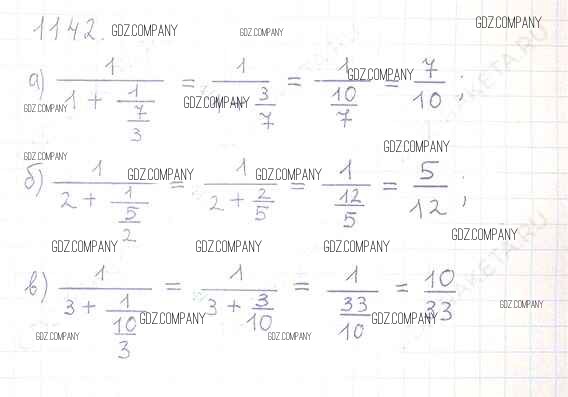 1142. GDZ.COMPANY GDZ.COMPANY GDZ.COMPANY
а) 1/(1 + 1/(7/3)) = 1/(1 + 3/7) = 1/(10/7) = 7/10;
GDZ.COMPANY GDZ.COMPANY GDZ.COMPANY
GDZ.COMPANY GDZ.COMPANY
б) 1/(2 + 1/(5/2)) = 1/(2 + 2/5) = 1/(12/5) = 5/12;
GDZ.COMPANY GDZ.COMPANY
GDZ.COMPANY GDZ.COMPANY GDZ.COMPANY GDZ.COMPANY
в) 1/(3 + 1/(10/3)) = 1/(3 + 3/10) = 1/(33/10) = 10/33
GDZ.COMPANY GDZ.COMPANY GDZ.COMPANY
GDZ.COMPANY GDZ.COMPANY